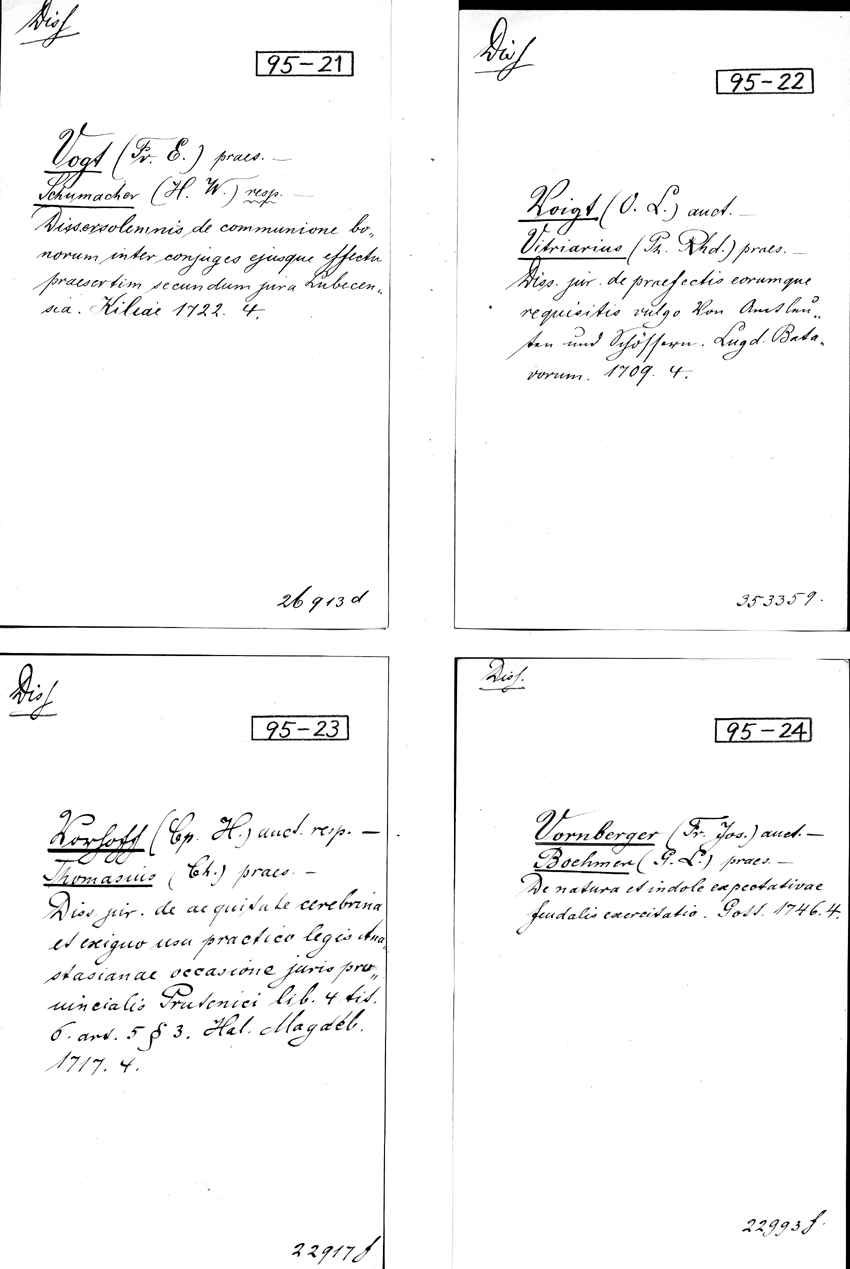 Diss
95-21
Vogt (Fr. E.) praes. —
Schumacher (H. W.) resp. —
Diss. solemnis de communione bo„
norum inter conjuges ejusque effectu
praesertim secundum jura Lubecen„
sia. Kiliae 1722. 4.
26913d
Diss
95-22
Voigt (O. L.) auct. —
Vitriarius (Ph. Rhd.) praes. —
Diss. jur. de praefectis eorumque
requisitis vulgo Von Amtleu„
ten und Schössern. Lugd. Bata„
vorum. 1709. 4.
353359.
Diss
95-23
Vorhoff (Cp. H.) auct. resp. —
Thomasius (Ch.) praes. —
Diss. jur. de aequitate cerebrina
et exiguo usu practico legis Ana„
stasianae occasione juris pro„
vincialis Prutenici lib. 4 tit.
6. art. 5 § 3. Hal. Magdeb.
1717. 4.
22917f
Diss.
95-24
Vornberger (Fr. Jos.) auct. —
Boehmer (G. L.) praes. —
De natura et indole expectativae
feudalis exercitatio. Gott. 1746. 4.
22993f.